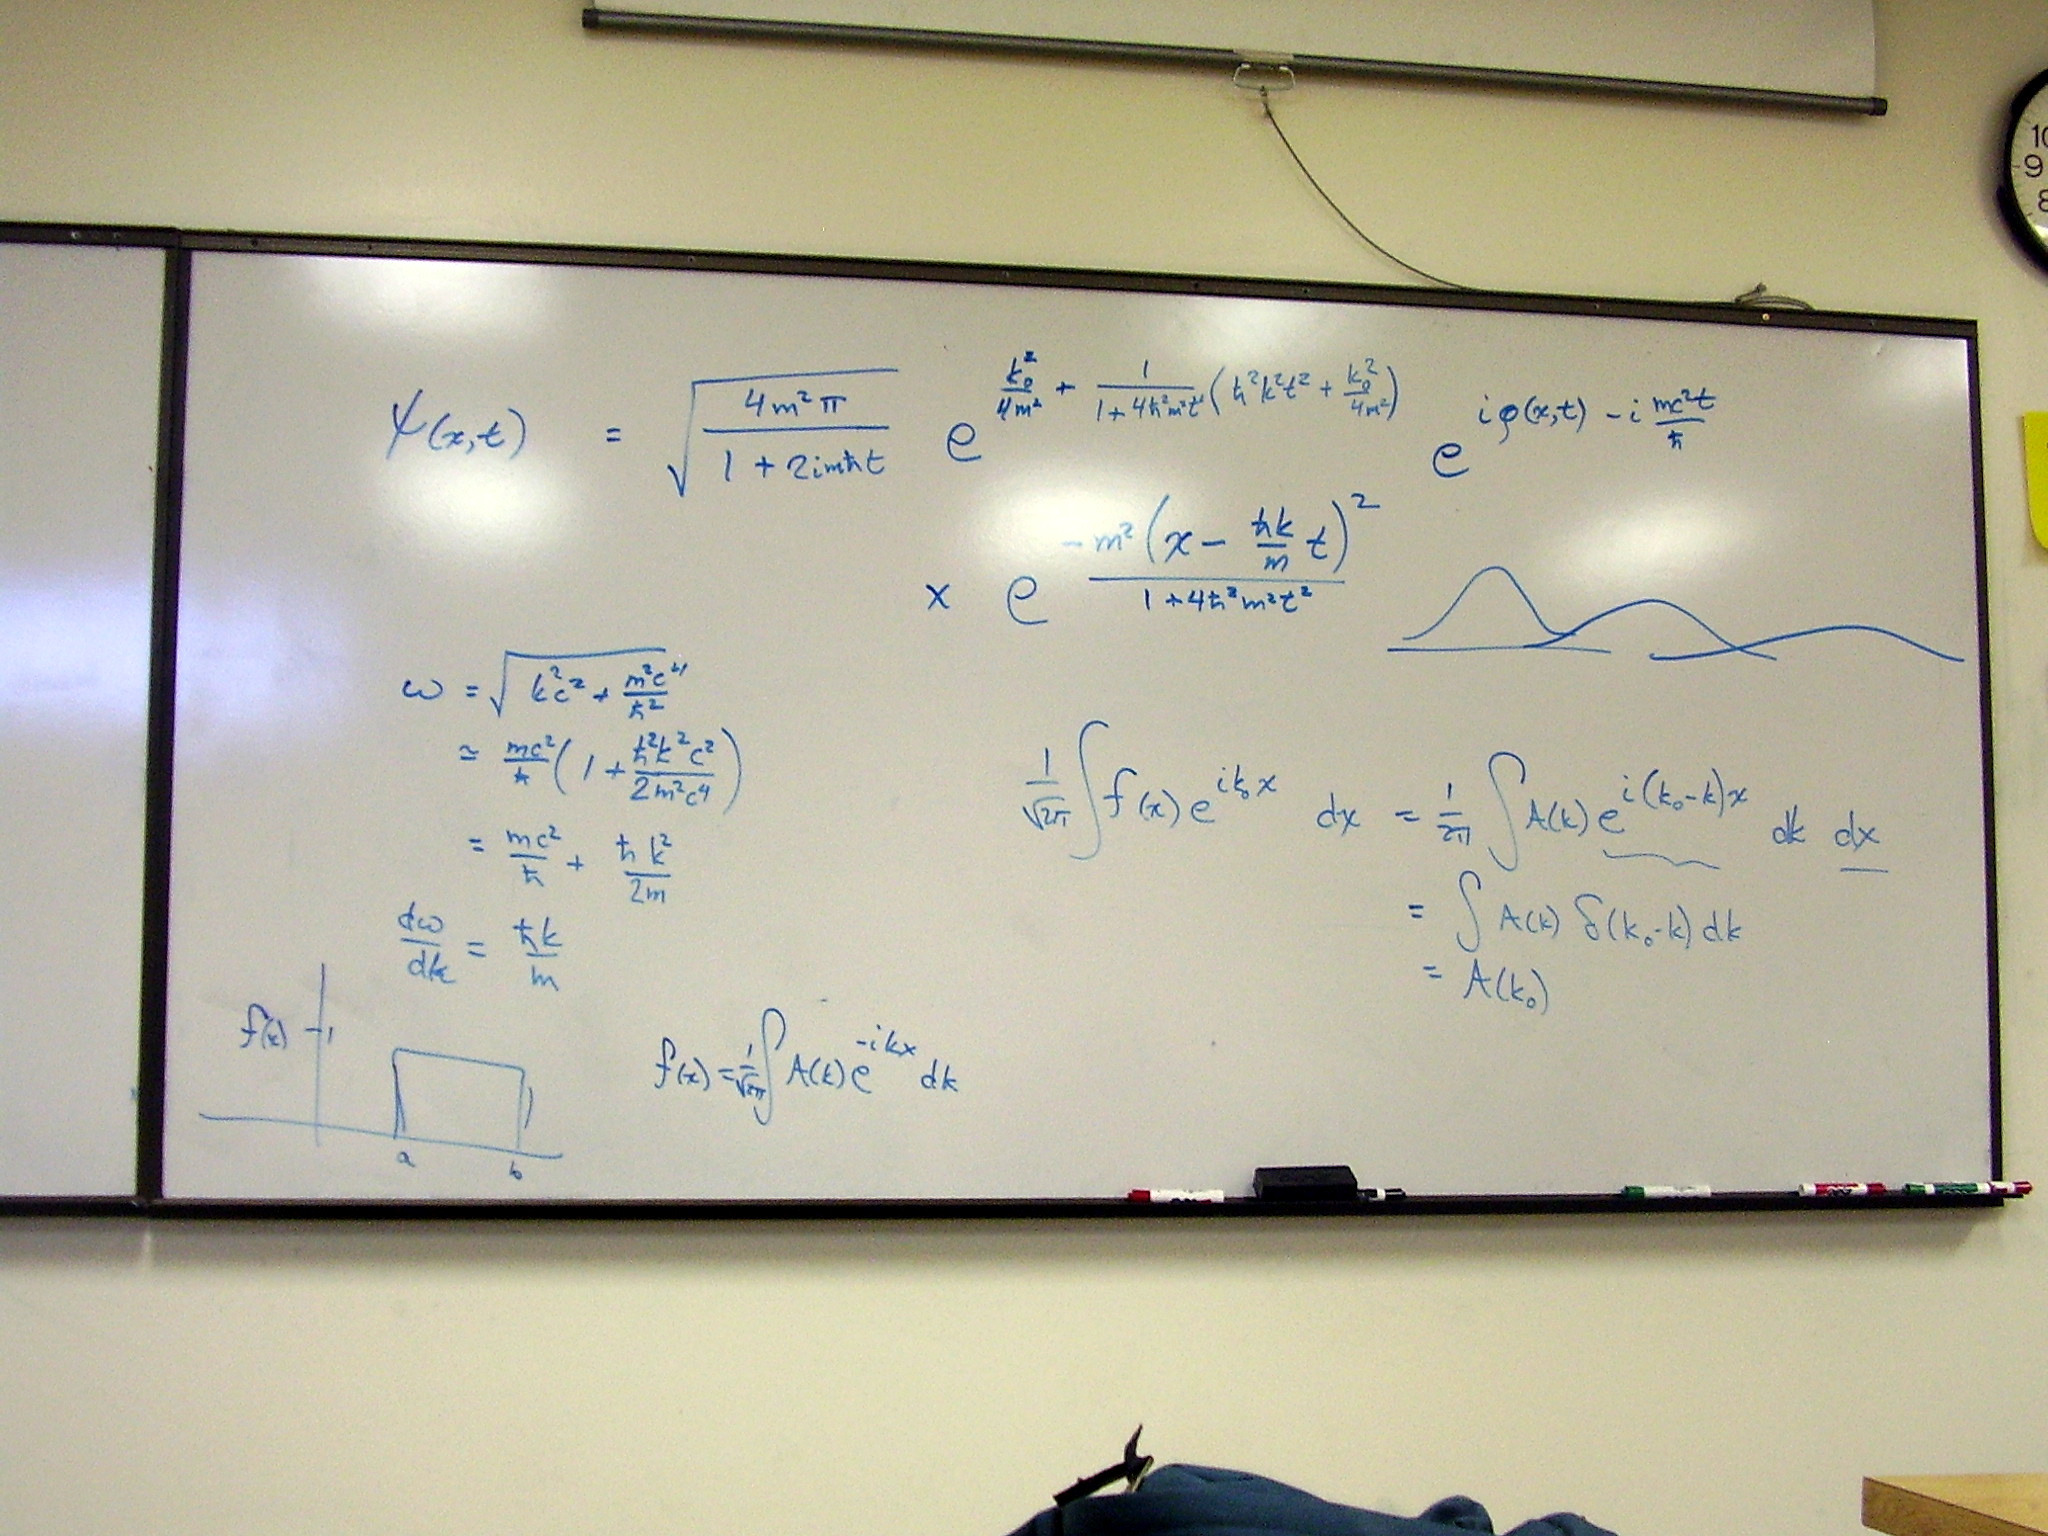 ψ(x,t) = √(4m²π / (1 + 2imħt)) e^(k₀²/4m² + 1/(1+4ħ²m²t²) (ħ²k²t² + k₀²/4m²)) e^(iφ(x,t) - i mc²t/ħ)
× e^(-m²(x - ħk/m t)² / (1+4ħ²m²t²))
ω = √(k²c² + m²c⁴/ħ²)
≃ mc²/ħ (1 + ħ²k²c²/2m²c⁴)
= mc²/ħ + ħk²/2m
dω/dk = ħk/m
1/√2π ∫ f(x) e^(ik₀x) dx = 1/2π ∫ A(k) e^(i(k₀-k)x) dk dx
= ∫ A(k) δ(k₀-k) dk
= A(k₀)
f(x) 1
a b
f(x) = 1/√2π ∫ A(k) e^(-ikx) dk
10
9
8